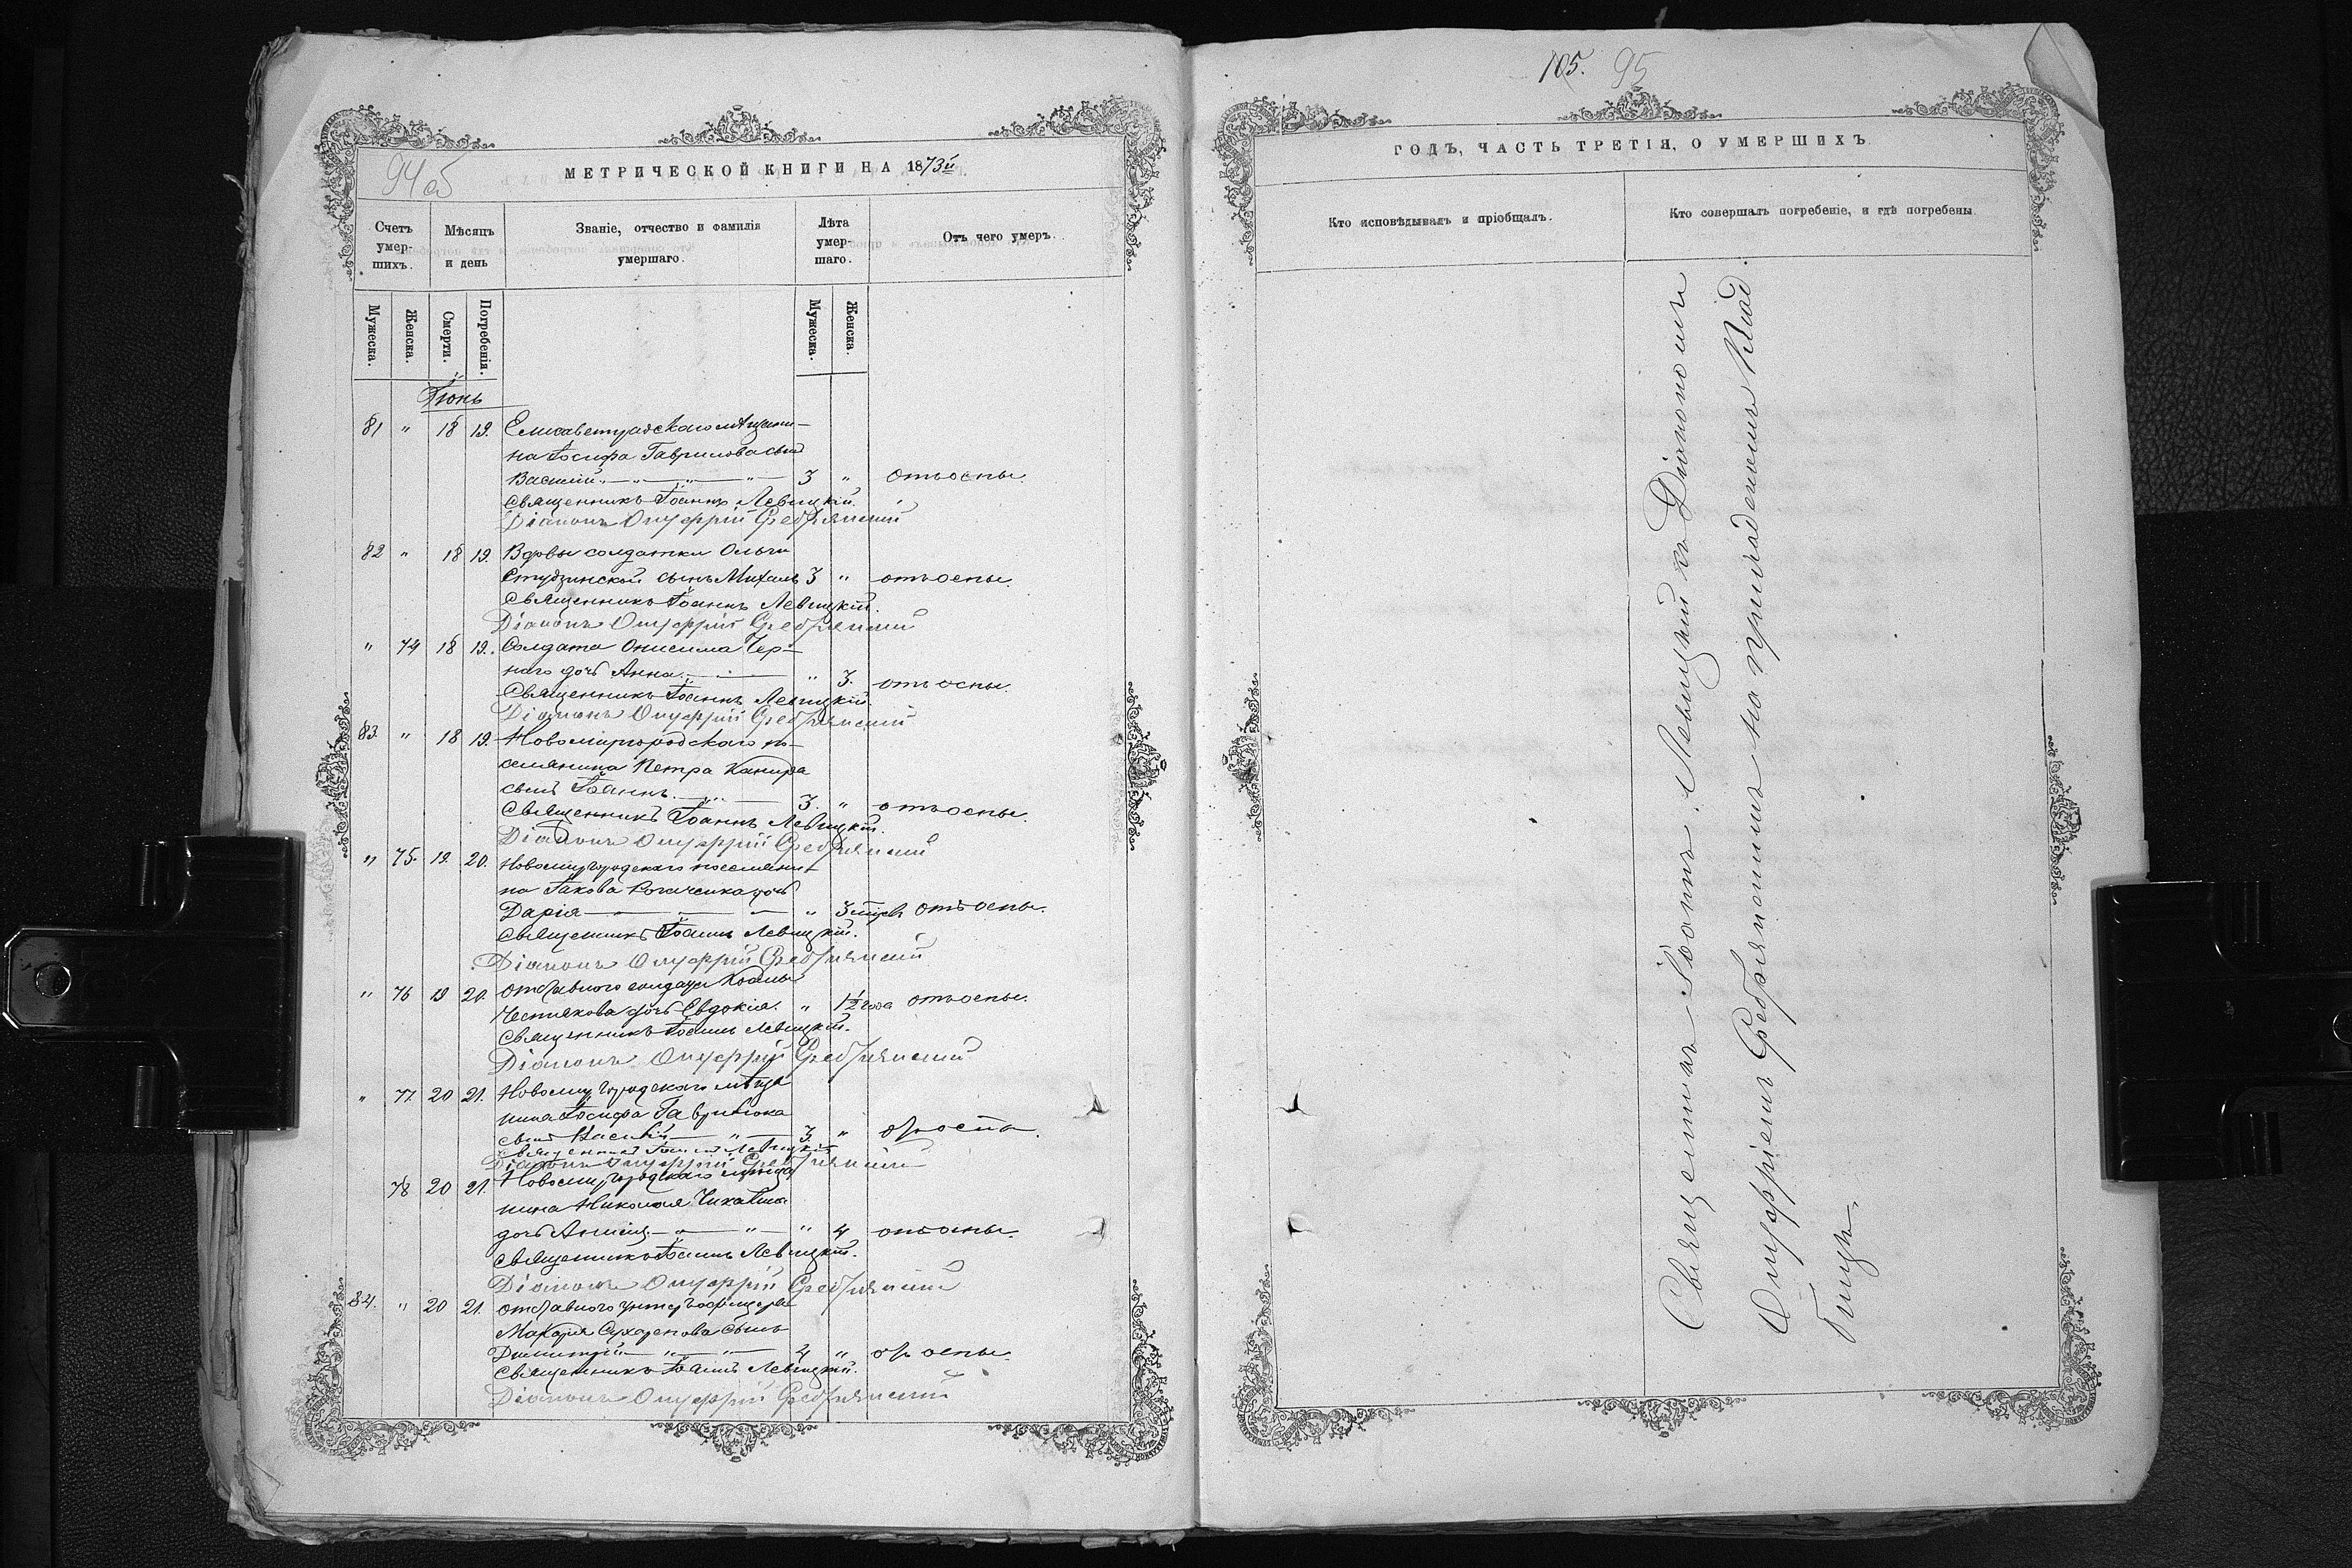 94 об
МЕТРИЧЕСКОЙ КНИГИ НА 1873й
Счетъ умер-шихъ.
Мѣсяцъ и день
Званіе, отчество и фамилія умершаго.
Лѣта умер-шаго.
Отъ чего умеръ.
Мужеска. Женска. Смерти. Погребенія. Мужеска. Женска.
Іюнь
81 " 18 19. Елисаветградскаго мѣщани-
на Іосифа Гаврилова сынъ
Василій 3 " отъ оспы.
Священникъ Іоаннъ Левицкій.
Діаконъ Онуфрій Сребрянскій
82 " 18 19. Вдовы солдатки Ольги
Студзинской сынъ Михаилъ 3 " отъ оспы.
Священникъ Іоаннъ Левицкій.
Діаконъ Онуфрій Сребрянскій
" 74 18 19. Солдата Онисима Чер-
наго дочь Анна " 3. отъ оспы.
Священникъ Іоаннъ Левицкій.
Діаконъ Онуфрій Сребрянскій
83. " 18 19. Новомиргородскаго по-
селянина Петра
сынъ Іоаннъ. 3. " отъ оспы.
Священникъ Іоаннъ Левицкій.
Діаконъ Онуфрій Сребрянскій
" 75. 19. 20. Новомиргородскаго поселяни-
на Іакова дочь
Дарія " 3 отъ оспы.
Священникъ Іоаннъ Левицкій.
Діаконъ Онуфрій Сребрянскій
" 76 19 20. отставного солдата
дочь Евдокія. " 1½ года отъ оспы.
Священникъ Іоаннъ Левицкій.
Діаконъ Онуфрій Сребрянскій
" 77. 20 21. Новомиргородскаго мѣща
нина Іосифа
сынъ Василій 3. "
Священникъ Іоаннъ Левицкій
Діаконъ Онуфрій Сребрянскій
78 20 21. Новомиргородскаго мѣща
нина Николая
дочь " 4 отъ оспы.
Священникъ Іоаннъ Левицкій.
Діаконъ Онуфрій Сребрянскій
84. " 20 21. отставного унтеръ офицера
Макарія сынъ
Димитрій 4 " отъ оспы.
Священникъ Іоаннъ Левицкій.
Діаконъ Онуфрій Сребрянскій
105. 95
ГОДЪ, ЧАСТЬ ТРЕТІЯ, О УМЕРШИХЪ.
Кто исповѣдывалъ и пріобщалъ.
Кто совершалъ погребеніе, и гдѣ погребены.
Священникъ Іоаннъ Левицкій съ Діакономъ
Онуфріемъ Сребрянскимъ на приходскомъ Клад
бищѣ.